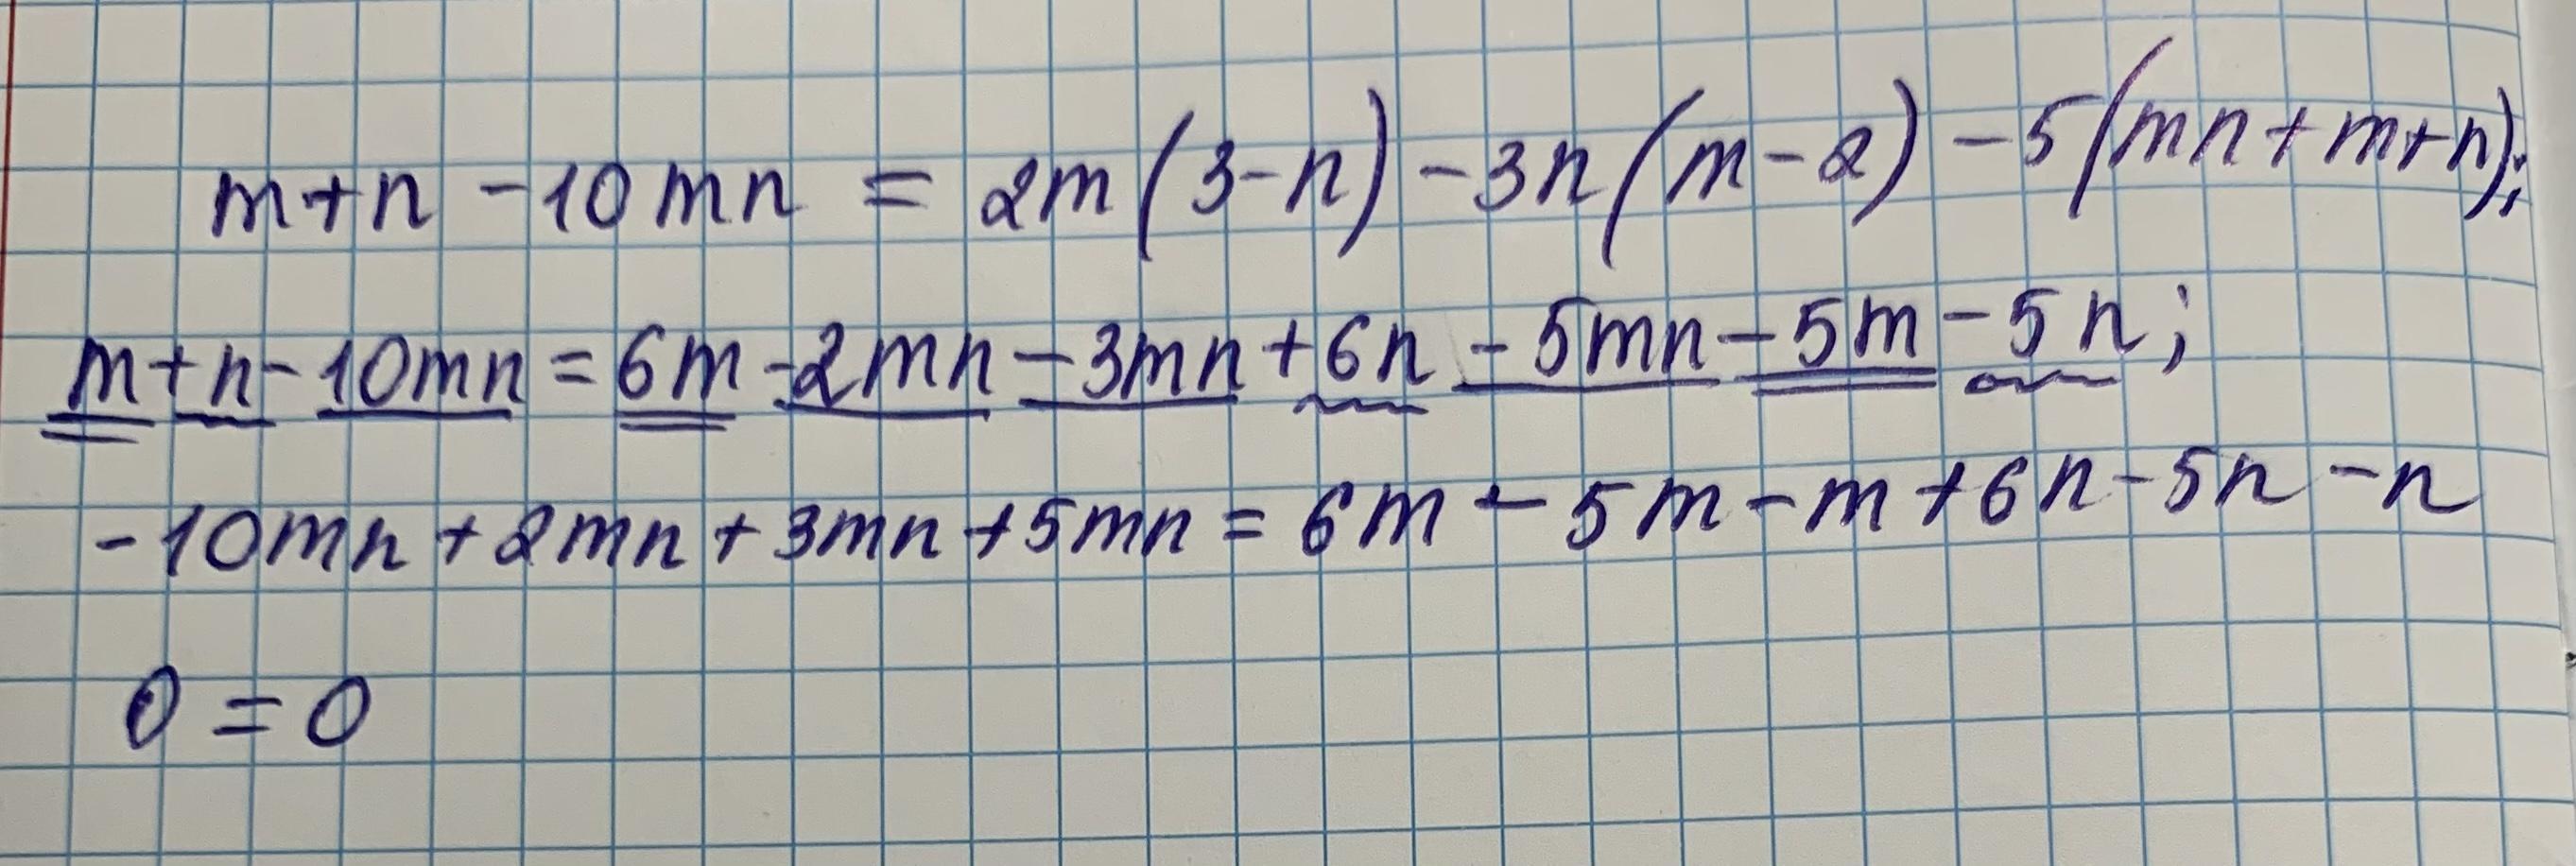 m+n -10mn = 2m(3-n)-3n(m-2)-5(mn+m+n);
m+n-10mn=6m-2mn-3mn+6n-5mn-5m-5n;
-10mn+2mn+3mn+5mn=6m-5m-m+6n-5n-n
0=0